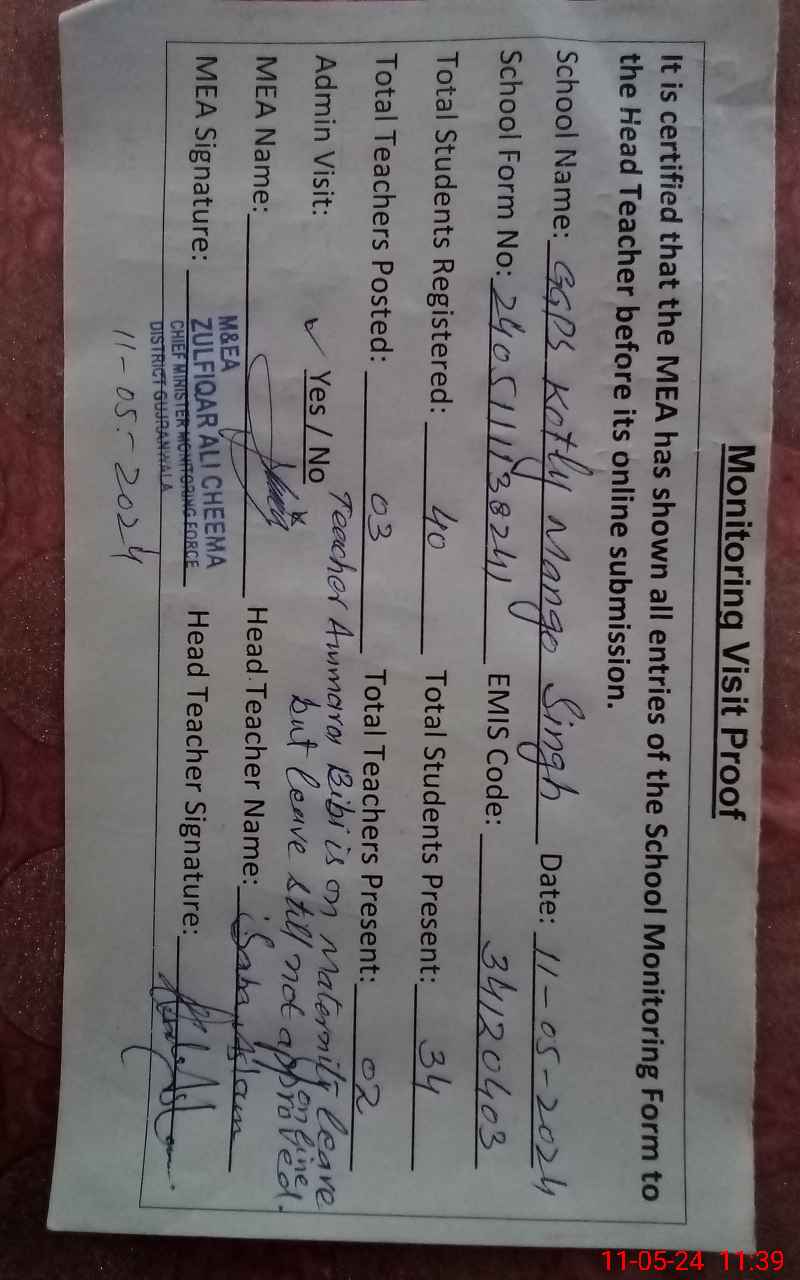 Monitoring Visit Proof
It is certified that the MEA has shown all entries of the School Monitoring Form to
the Head Teacher before its online submission.
School Name: GGPS Kotly Mango Singh Date: 11-05-2024
School Form No: 2405111138241 EMIS Code: 34120403
Total Students Registered: 40 Total Students Present: 34
Total Teachers Posted: 03 Total Teachers Present: 02
Admin Visit: ✓ Yes / No Teacher Ammara Bibi is on maternity leave
but leave still not online approved.
MEA Name: Head Teacher Name: Saba Aslam
MEA Signature: Head Teacher Signature:
M&EA
ZULFIQAR ALI CHEEMA
CHIEF MINISTER MONITORING FORCE
DISTRICT GUJRANWALA
11-05-2024
11-05-24 11:39